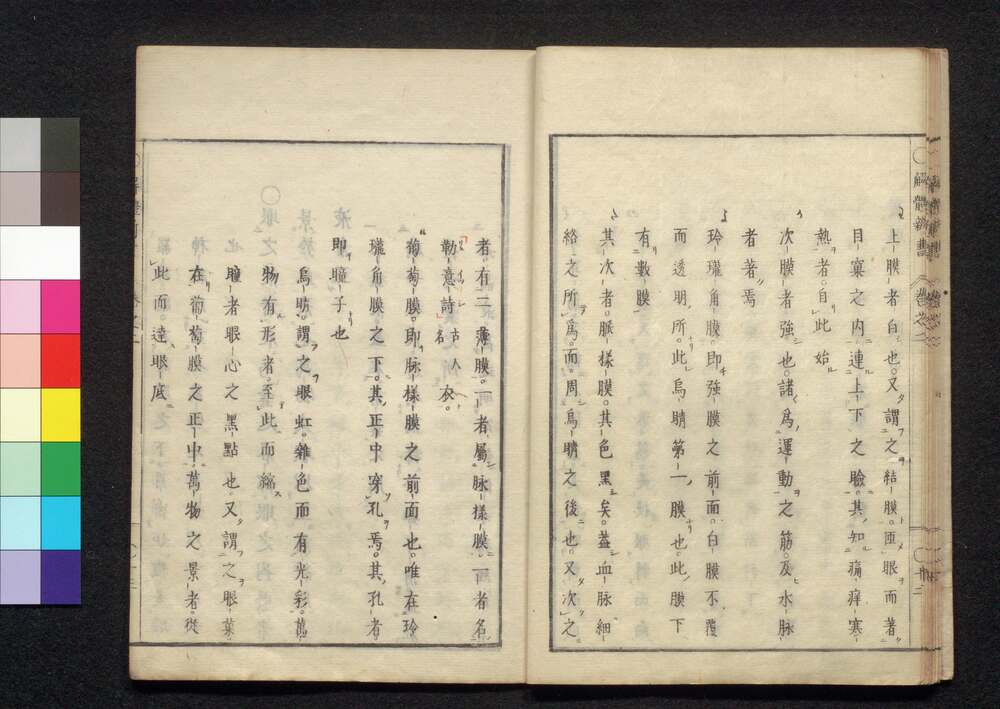 上膜者白也。又謂之結膜。匝眼而著
目窠之内。連上下之瞼。其知痛痒寒
熱者。自此始
次膜者強也。諸爲運動之筋。及水脉
者著焉
玲瓏角膜。即強膜之前面。白膜不覆
而透明所。此烏睛第一膜也。此膜下
有數膜
其次者脈樣膜。其色黑矣。蓋血脉細
絡之所爲。而周爲睛之後也。又次之
解體新書 卷之二
者有二薄膜。一者屬脉樣膜。一者名
勒意詩古人名衣。
葡萄膜。即脉樣膜之前面也。唯在玲
瓏角膜之下。其正中穿孔焉。其孔者
即瞳子也
烏睛。謂之眼虹。雜色而有光彩。萬
物有形者。至此而縮
瞳者眼心之黑點也。又謂之眼葉
在葡萄膜之正中。萬物之景者。從
此而達眼底